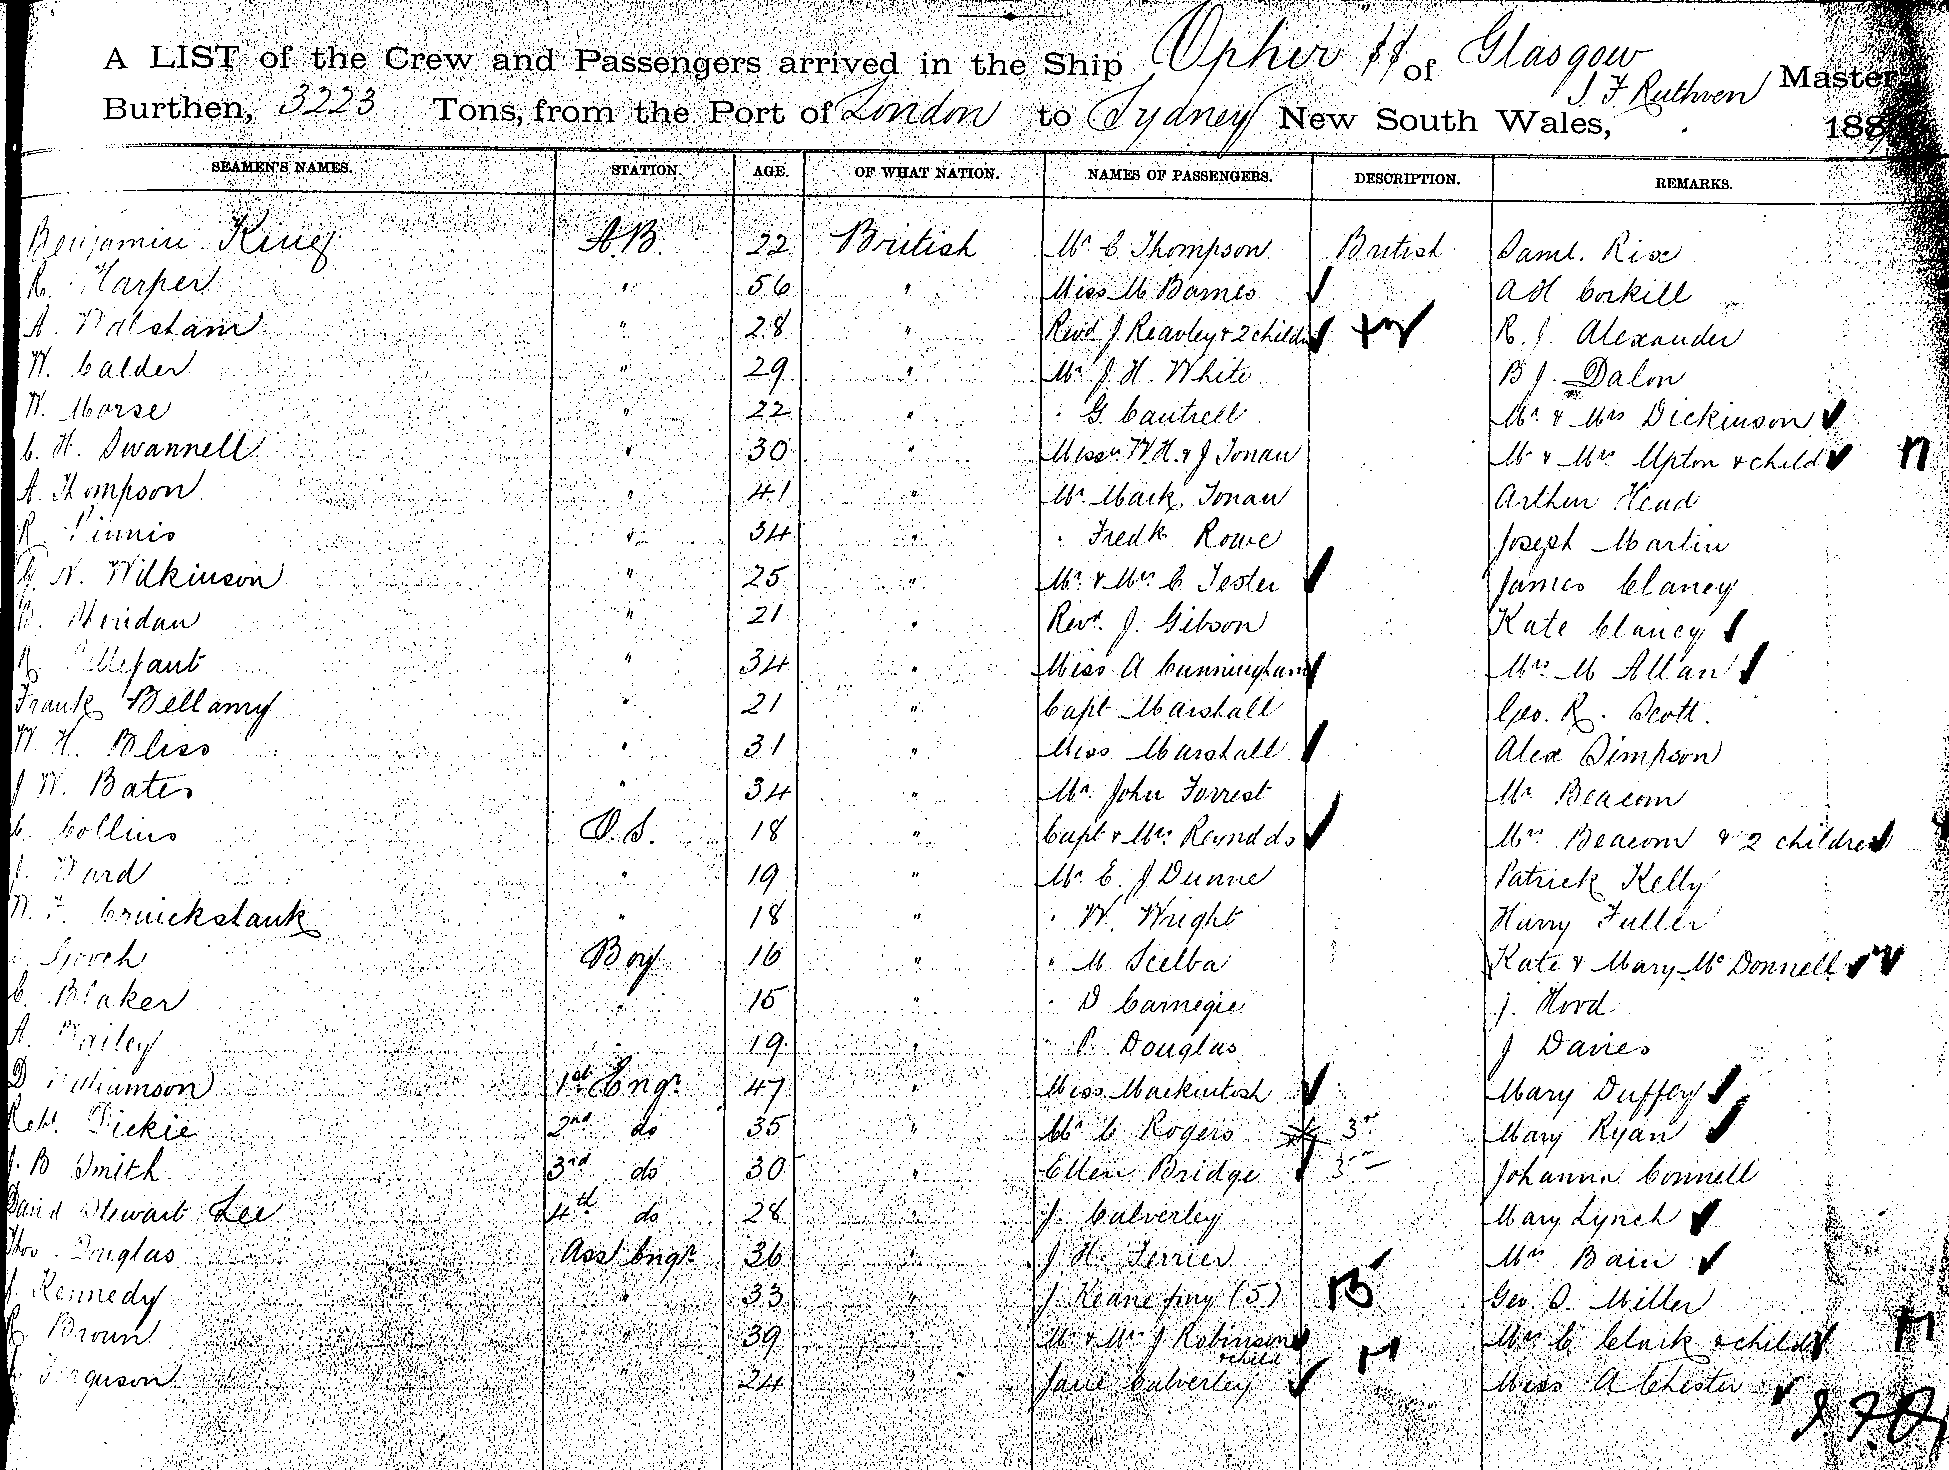 A LIST of the Crew and Passengers arrived in the Ship Ophir SS of Glasgow
J F Ruthven Master
Burthen, 3223 Tons, from the Port of London to Sydney New South Wales, 188
SEAMEN'S NAMES. STATION. AGE. OF WHAT NATION. NAMES OF PASSENGERS. DESCRIPTION. REMARKS.
Benjamin King A.B. 22 British Mr C Thompson British Saml. Rix
R. Harper " 56 " Miss M Barnes A H Corkill
A. Walsham " 28 " Revd J Reavley & 2 childn R. J. Alexander
W. Calder " 29 " Mr J. H. White B J. Dalon
W. Morse " 22 " " G Cantrell Mr & Mrs Dickinson
C. H. Swannell " 30 " Messrs W. H. & J Tonan Mr & Mrs Upton & child n
A. Thompson " 41 " Mr Mark Tonan Arthur Head
R. " 34 " " Fredk Rowe Joseph Martin
G. N. Wilkinson " 25 " Mr & Mrs C Tester James Clancy
B. Sheridan " 21 " Revd. J. Gibson Kate Clancy
R " 34 " Miss A Cunningham Mrs M Allan
Frank Bellamy " 21 " Capt Marshall Geo. R. Scott.
W. H. Bliss " 31 " Miss Marshall Alex Simpson
J W. Bates " 34 " Mr John Forrest Mr Beacom
C. Collins O.S. 18 " Capt & Mrs Reynolds Mrs Beacom & 2 children
J. Ward " 19 " Mr E. J Dunne Patrick Kelly
W. F. Cruickshank " 18 " " W. Wright Harry Fuller
Boy 16 " " M Scelba Kate & Mary McDonnell
C. Blaker " 15 " " D Carnegie J. Hood
A. Bailey " 19 " " P. Douglas J Davies
D Williamson 1st Engr. 47 " Miss Mackintosh Mary Duffey
Robt. Dickie 2nd do 35 " Mr C Rogers Mary Ryan
J. B Smith 3rd do 30 " Ellen Bridge Johanna Connell
David Stewart Lee 4th do 28 " J. Calverley Mary Lynch
Thos. Douglas Asst Engr. 36 " J H. Ferrier Mrs Bain
J. Kennedy " 33 " J. Keane (5) B Geo. S. Miller
R Brown " 39 " Mr & Mrs J Robinson & child H Mrs C Clark & child H
Ferguson " 24 " Jane Calverley Miss A Chester